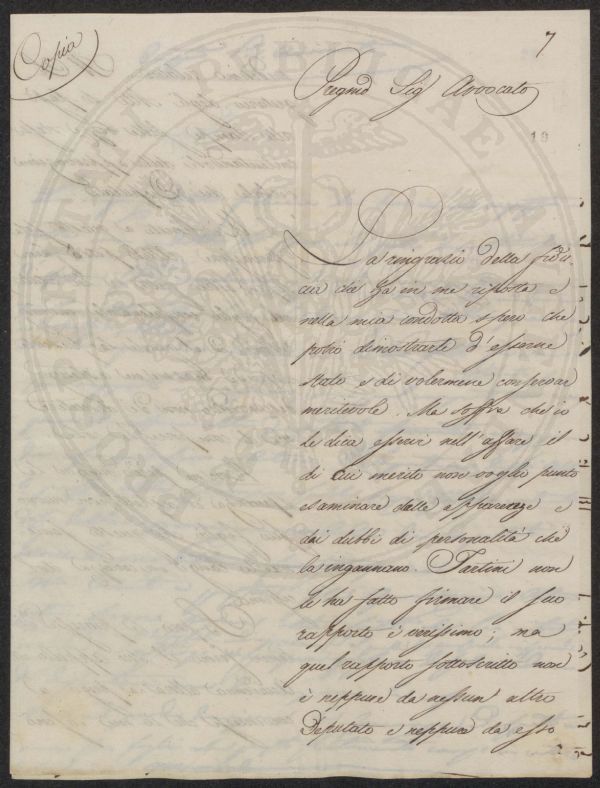 Copia
7
Pregmo Sig Avvocato
19
La ringrazio della fidu-
cia che ha in me riposta e
nella mia condotta spero che
potrò dimostrarle d'esserne
stato e di volermene conservar
meritevole. Ma soffra che io
le dica esservi nell'affare il
di cui merito non voglio punto
esaminare delle apparenze e
dei dubbi di personalità che
la ingannano. Tartini non
le ha fatto firmare il suo
rapporto è verissimo; ma
quel rapporto sottoscritto non
è neppure da nessun altro
Deputato e neppure da esso